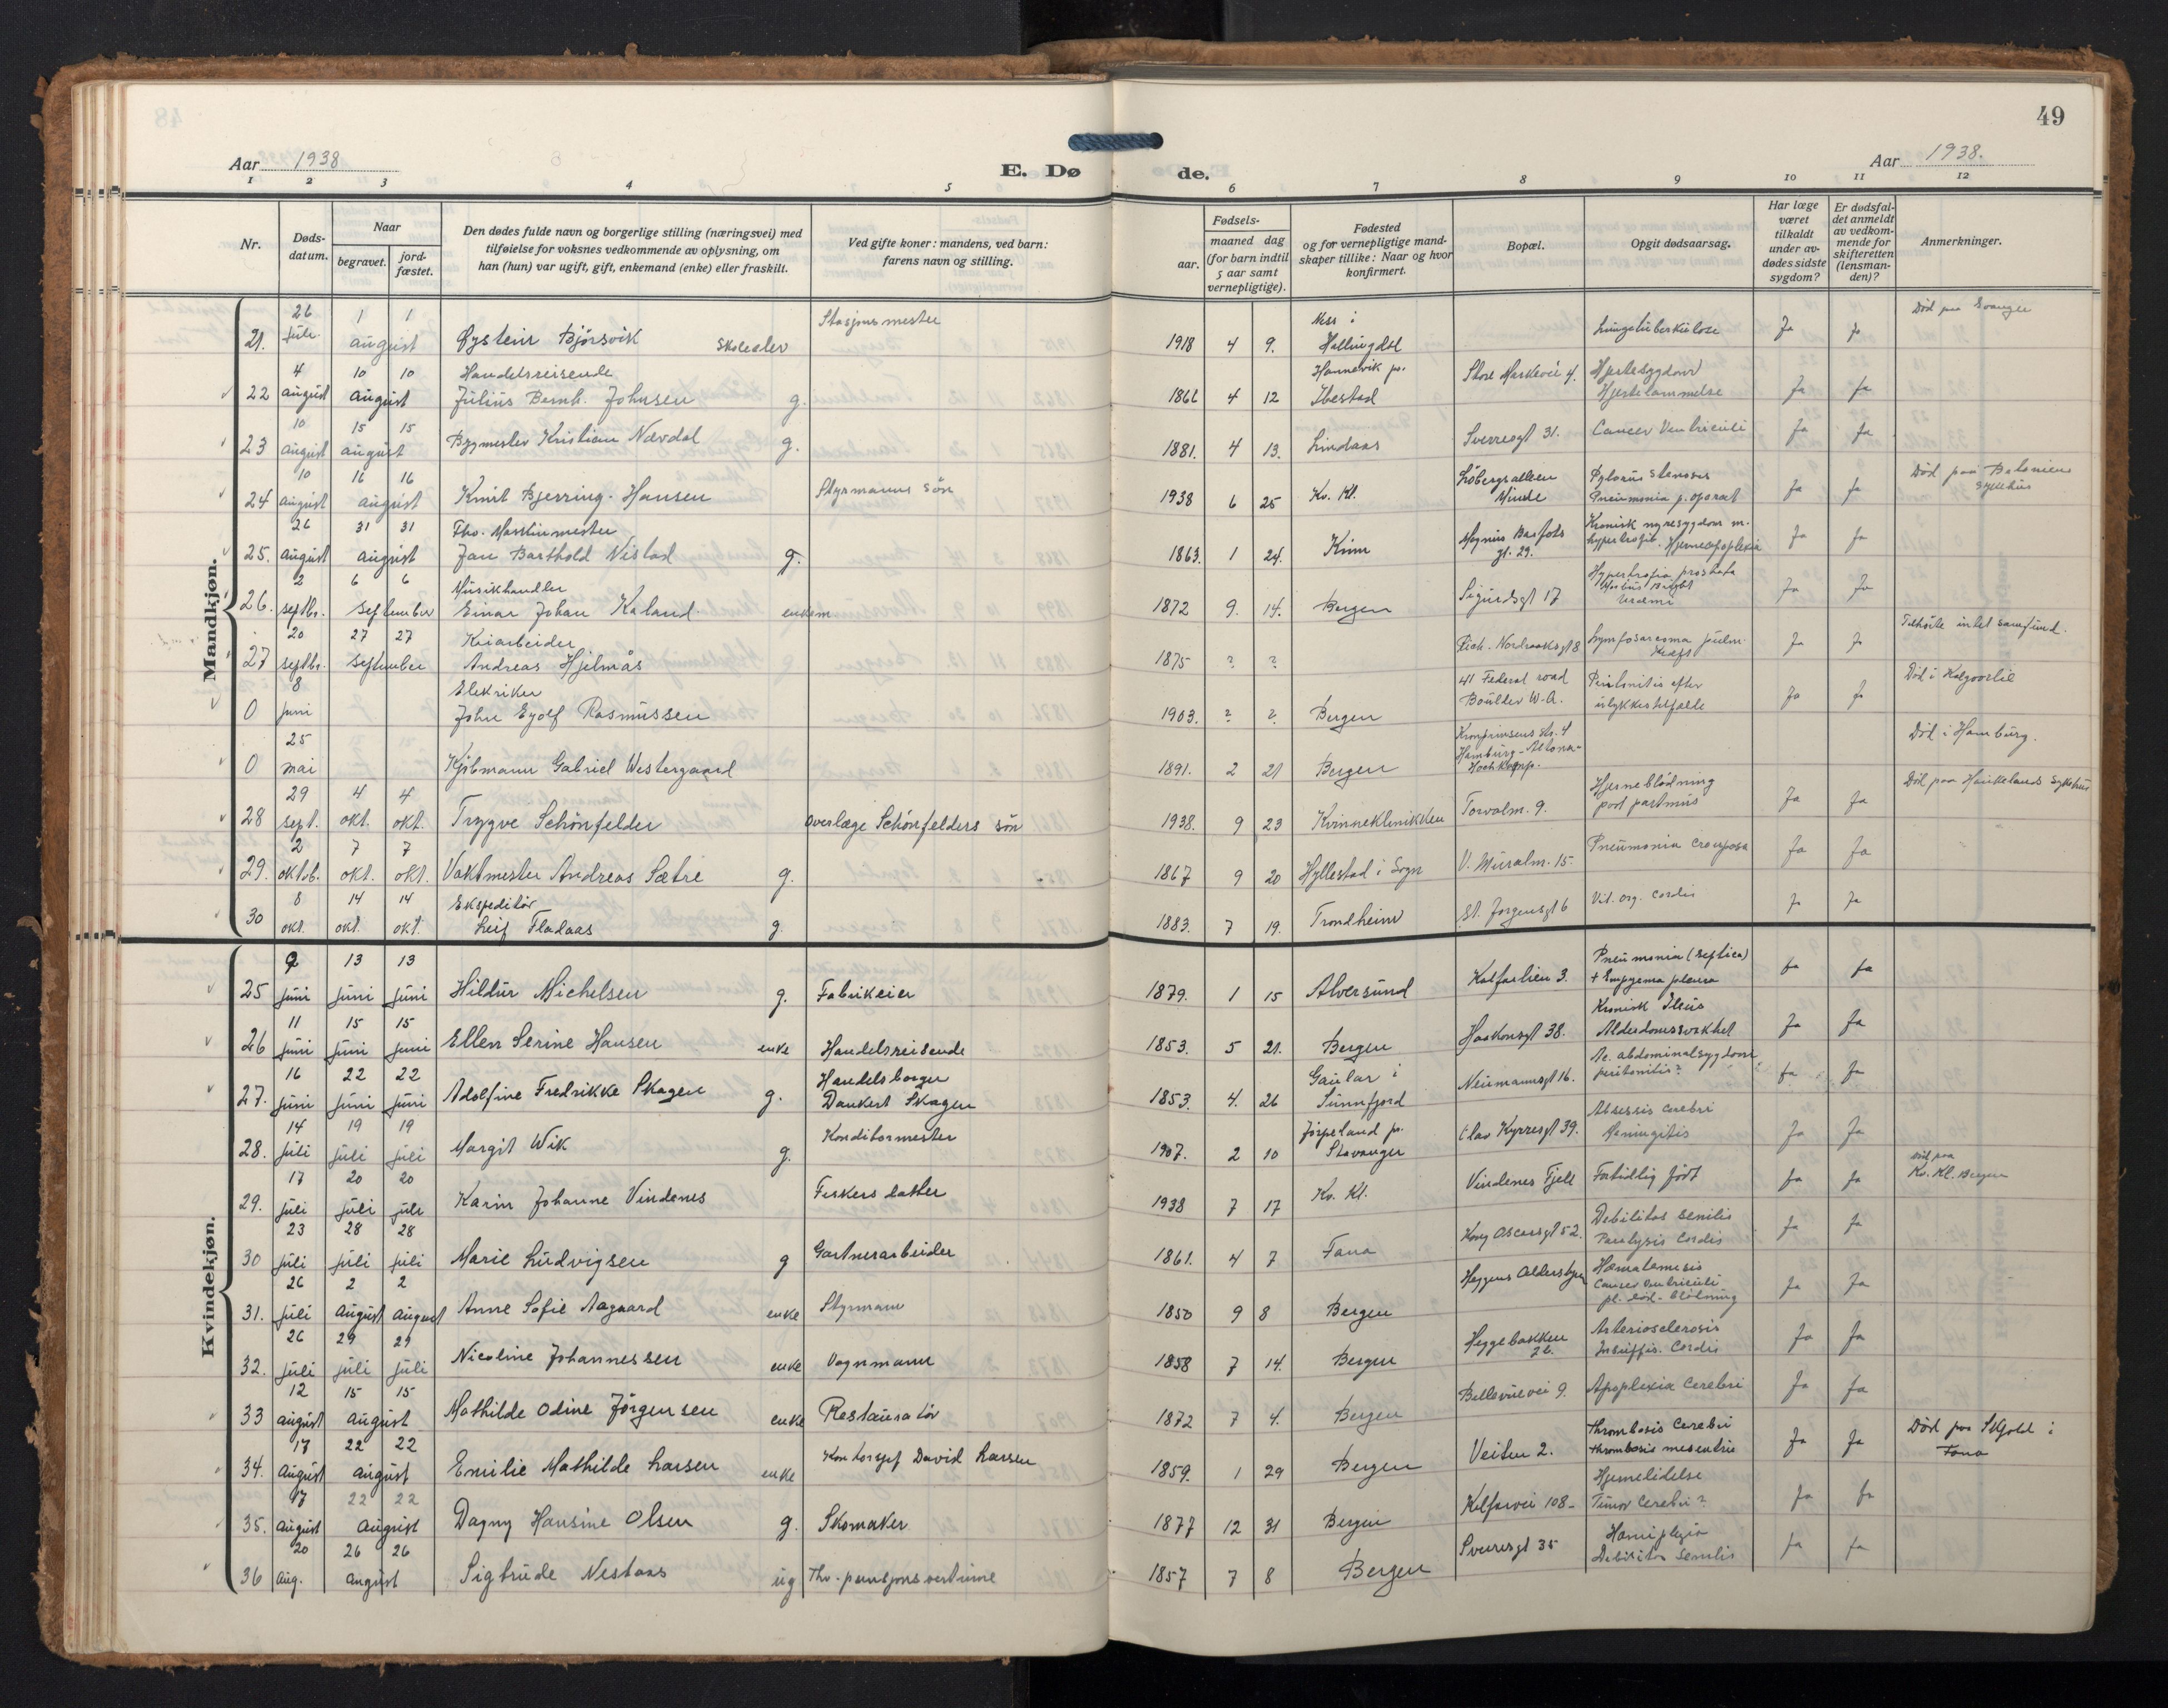 49
Aar 1938
E. Dø
de.
Aar 1938.
1 2 3 4 5 6 7 8 9 10 11 12
Nr.
Døds-
datum.
Naar
begravet.
jord-
fæstet.
Den dødes fulde navn og borgerlige stilling (næringsvei) med
tilføielse for voksnes vedkommende av oplysning, om
han (hun) var ugift, gift, enkemand (enke) eller fraskilt.
Ved gifte koner: mandens, ved barn:
farens navn og stilling.
Fødsels-
aar.
maaned dag
(for barn indtil
5 aar samt
vernepligtige).
Fødested
og for vernepligtige mand-
skaper tillike: Naar og hvor
konfirmert.
Bopæl.
Opgit dødsaarsag.
Har læge
været
tilkaldt
under av-
dødes sidste
sygdom?
Er dødsfal-
det anmeldt
av vedkom-
mende for
skifteretten
(lensman-
den)?
Anmerkninger.
Mandkjøn.
26 1 1 Stasjonsmester Nes i Død paa
21. juli august Øystein Bjørsvik skoleelev 1918 4 9. Hallingdal Lungetuberkulose Ja ja
4 10 10 Handelsreisende Hamnvik p. Store Markevei 4. Hjertesygdom
22 august august Julius Bernh. Johnsen g. 4 12 Ibestad Hjertelammelse Ja ja
10 15 15
23 august august Bygmester Kristian Nævdal g. 1881. 4 13. Lindaas Sverresgt 31. Cancer Ventriculi Ja ja
10 16 16 Styrmanns søn Løbergsalleen Pylorus stenose Død paa Betanien
24 august august Knut Bjerring-Hansen 1938 6 25 Kv. Kl. Minde Pneumonia p. operat Ja ja sykehus
26 31 31 Fhv. Maskinmester Magnus Barfots Kronisk nyresygdom m.
25. august august Jan Barthold Nistad g. 1863. 1 24. gt. 29. hypertrofi. Hjerneapoplexia Ja ja
2 6 6 Musikhandler Hypertrofia prostata
26. septbr. september Einar Johan Kaland enkem 1872 9. 14. Bergen Sigurdsgt 17 Morbus Brighti Uræmi Ja Ja
20 27 27 Kaiarbeider Tilhørte intet samfund.
27 septbr. september Andreas Hjelmås 1875 ? ? Rich. Nordraaksgt 8 Lymfosarcoma pulm. Ja Ja
8 Elekriker 41 Federal road Peritonitis efter Død i Kalgoorlie
0 juni John Eyolf Rasmussen 1903. ? ? Bergen Boulder W-A. ulykkestilfælde Ja Ja
25 Kronprinsens str. 4 Død i Hamburg.
0 mai Kjøbmann Gabriel Westergaard 1891. 2 21 Bergen Hamburg-Altona-
29 4 4 Hjerneblødning Død paa Haukelands sykehus
28 sept. okt. okt. Trygve Schønfelder Overlæge Schønfelders søn 1938. 9 23 Kvinneklinikken Torvalm. 9. post partmus Ja Ja
2 7 7
29. oktob. okt. okt. Vaktmester Andreas Sætre g. 1867 9 20 Hyllestad i Sogn V. Muralm. 15. Pneumonia crouposa Ja Ja
8 14 14 Ekspeditør
30 okt. okt. okt. Leif Fladaas g 1883. 7 19. Trondheim St. Jørgensgt 6 Vit. org. cordis Ja Ja
Kvindekjøn.
9 13 13 Pneumonia (septica)
25 juni juni juni Hildur Michelsen g. Fabrikeier 1879. 1 15 Alversund Kalfarlien 3. + Empyema pleura ja ja
11 15 15 Kronisk Ileus
26 juni juni juni Ellen Serine Hansen enke Handelsreisende 1853. 5 21. Bergen Haakonsgt 38. Alderdomssvakhet Ja Ja
16 22 22 Handelsborger Gaular i Ac. abdominalsygdom
27. juni juni juni Adolfine Fredrikke Skagen g. Dankert Skagen 1853. 4. 26 Sunnfjord Neumannsgt 16. peritonitis? Ja Ja
14 19 19 Konditormester Jørpeland p. Absessis cerebri
28. juli juli juli Margit Wik g. 1907. 2 10 Stavanger Olav Kyrresgt 39. Meningitis Ja Ja
17 20 20 Fiskers datter død paa
29. juli juli juli Karin Johanne Vindenes 1938 7 17 Kv. Kl. Vindenes Fjell Fortidlig født ja ja Kv. Kl. Bergen
23 28 28 Debilitas senilis
30 juli juli juli Marie Ludvigsen g Gartnerarbeider 1861. 4 7 Fana Kong Oscarsgt 52. Paralysis Cordis Ja Ja
26 2 2 Hæmatemesis
31. juli august august Anne Sofie Aagaard enke Styrmann 1850 9 8 Bergen Cancer Ventriculi Ja Ja
pl. død - blødning
26 29 29 Heggebakken Arteriosclerosis
32. juli juli juli Nicoline Johannessen enke Vognmann 1858 7 14. Bergen 26. Insuffis. Cordis Ja Ja
12 15 15
33 august august Mathilde Odine Jørgensen enke Restauratør 1872 7 4. Bergen Bellevuevei 9. Apoplexia Cerebri Ja Ja
17 22 22 Kontorsjef David Larsen thrombosis Cerebri Død paa Skjold i
34. august august Emilie Mathilde Larsen enke 1859. 1 29 Bergen Veiten 2. thrombosis mesentrie Ja Ja Fana
17 22 22 Hjernelidelse
35. august august Dagny Hansine Olsen g. Skomaker 1877 12 31 Bergen Kalfarvei 108- Tumor Cerebri? Ja Ja
20 26 26 Hemiplegia
36 aug. august Sigtrude Nestaas ug Fhv. pensjonsvertinne 1857 7 8 Bergen Sverresgt 35 Debilitas Senilis Ja Ja